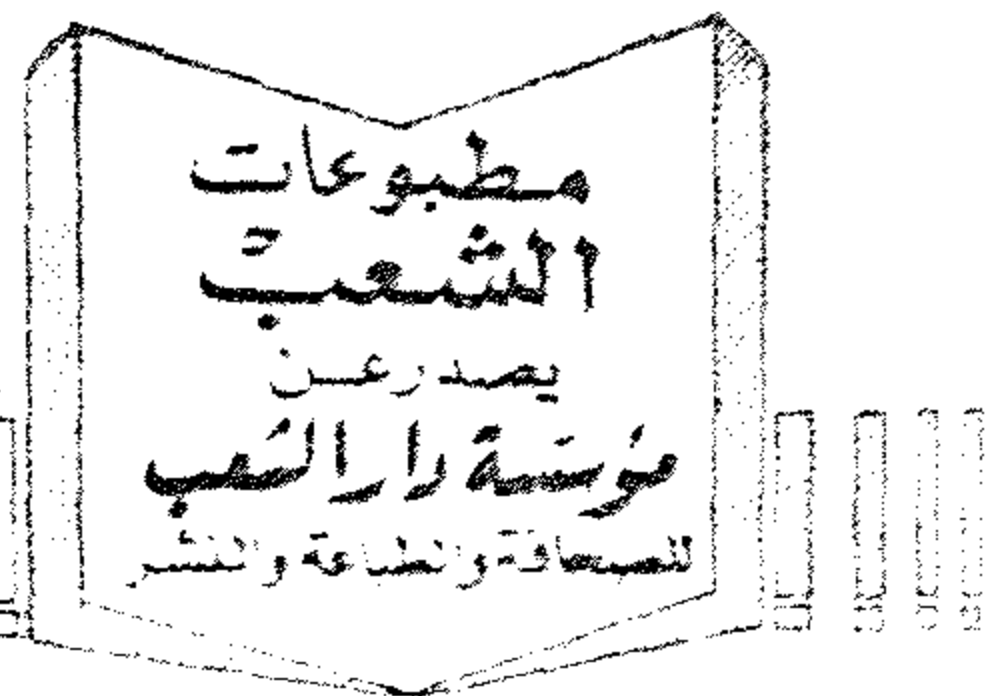 مطبوعات
الشعب
يصدر عن
مؤسسة دار الشعب
للصحافة والطباعة والنشر